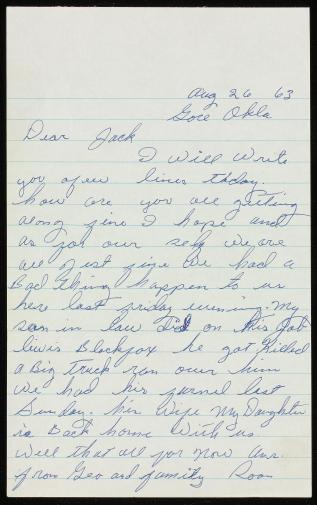 Aug 26 63
Gore Okla
Dear Jack
I will write
you afew lines today.
how are you all getting
along fine I hope and
as for our self we are
all Just fine we had a
Bad thing happen to us
here last friday evening. my
son in law Died on this Job
lewis Blackfox he got Killed
a Big truck ran over him
we had his funel last
Sunday. his wife my Daughter
is Back home with us
well that all for now ans.
from Geo and family Soon